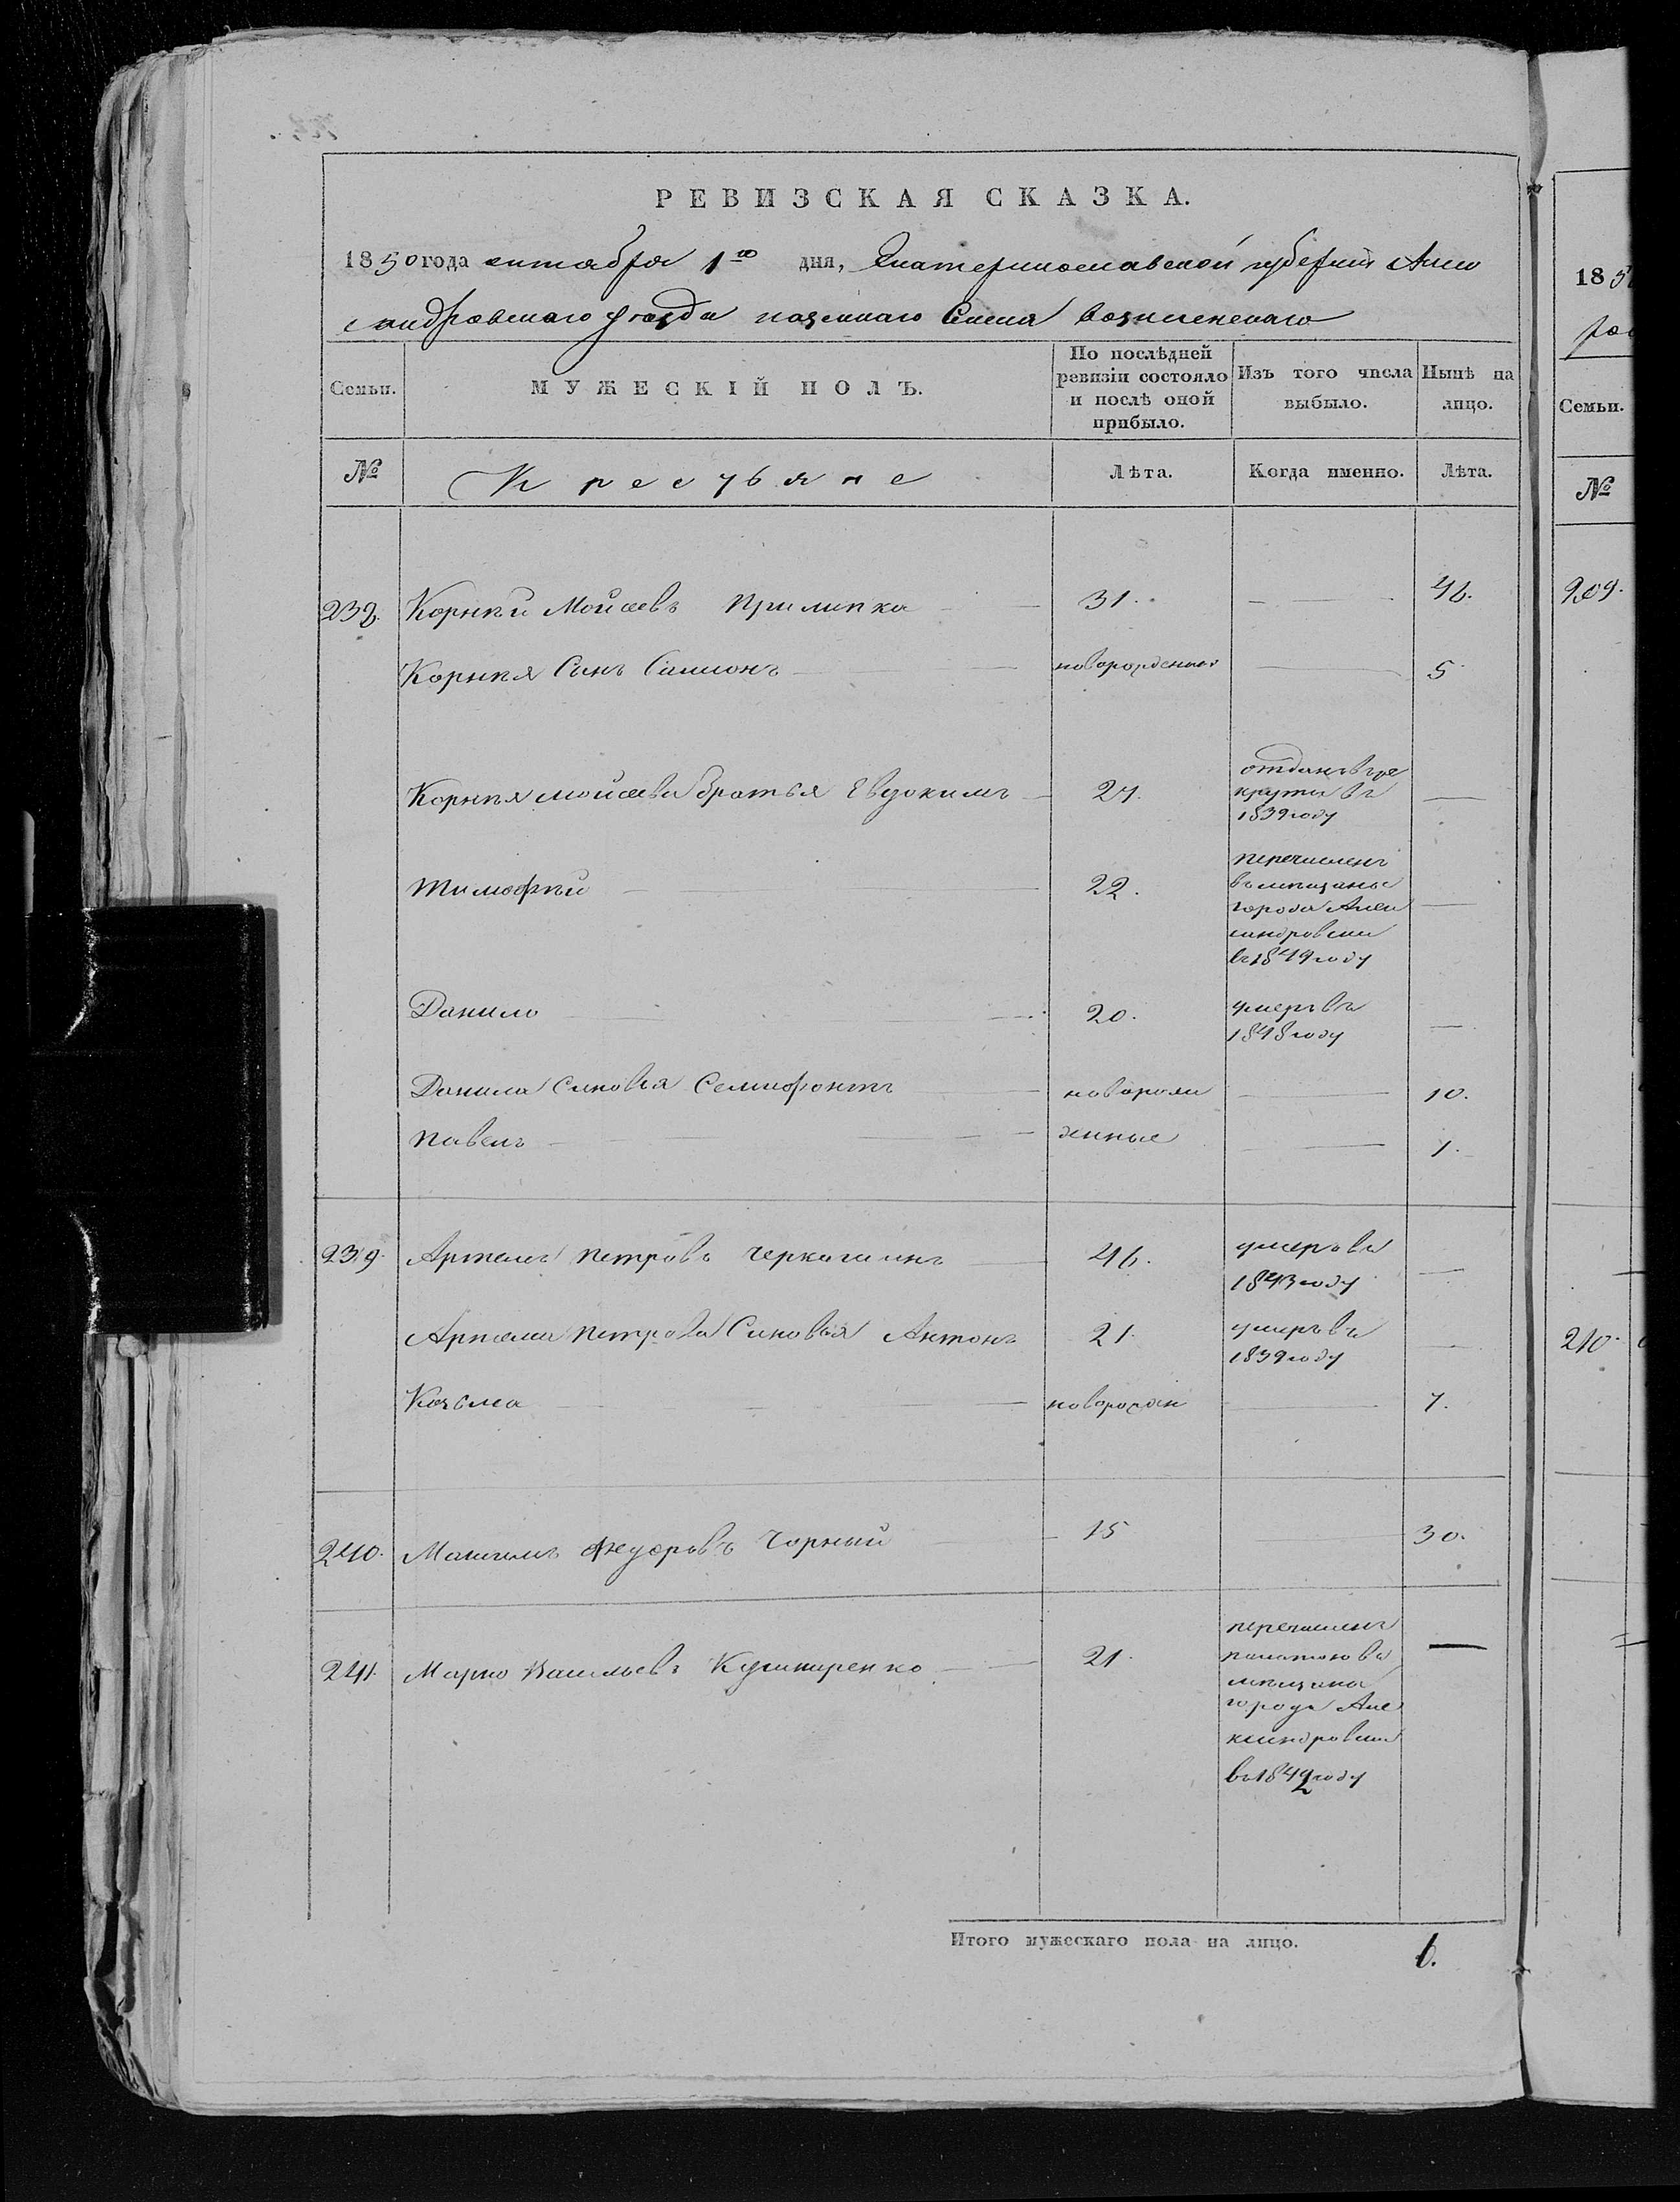 РЕВИЗСКАЯ СКАЗКА.
1850 года октября 1го дня, Екатеринославской губернии Алек
сандровского уезда казеннаго Села Вознесенскаго
Семьи. МУЖЕСКІЙ ПОЛЪ. По послѣдней ревизіи состояло и послѣ оной прибыло. Изъ того числа выбыло. Нынѣ на лицо.
№ Крестьяне Лѣта. Когда именно. Лѣта.
238. Корнѣй Мойсеевъ Прилипка 31. 46.
Корнѣя Сынъ Симионъ новорожденной 5
Корнѣя Мойсеева братья Евдокимъ 27. отданъ въ ре
круты въ
1839 году
Тимофѣй 22. перечисленъ
въ мѣщане
города Алек
сандровска
въ 1849 году
Данило 20. умеръ въ
1848 году
Данила Сыновья Семифонтъ новорож 10.
Павелъ денные 1.
239. Артемъ Петровъ 46. умеръ въ
1843 году
Артема Петрова Сыновья Антонъ 21 умеръ въ
1839 году
Козьма новорожден 7.
240. Максимъ Федоровъ Чорный 15 30.
241. Марко Васильевъ Кушниренко 21. перечисленъ
въ
мѣщане
города Але
ксандровска
въ 1842 году
Итого мужескаго пола на лицо. 6.
185
ров
Семьи.
№
209.
210.